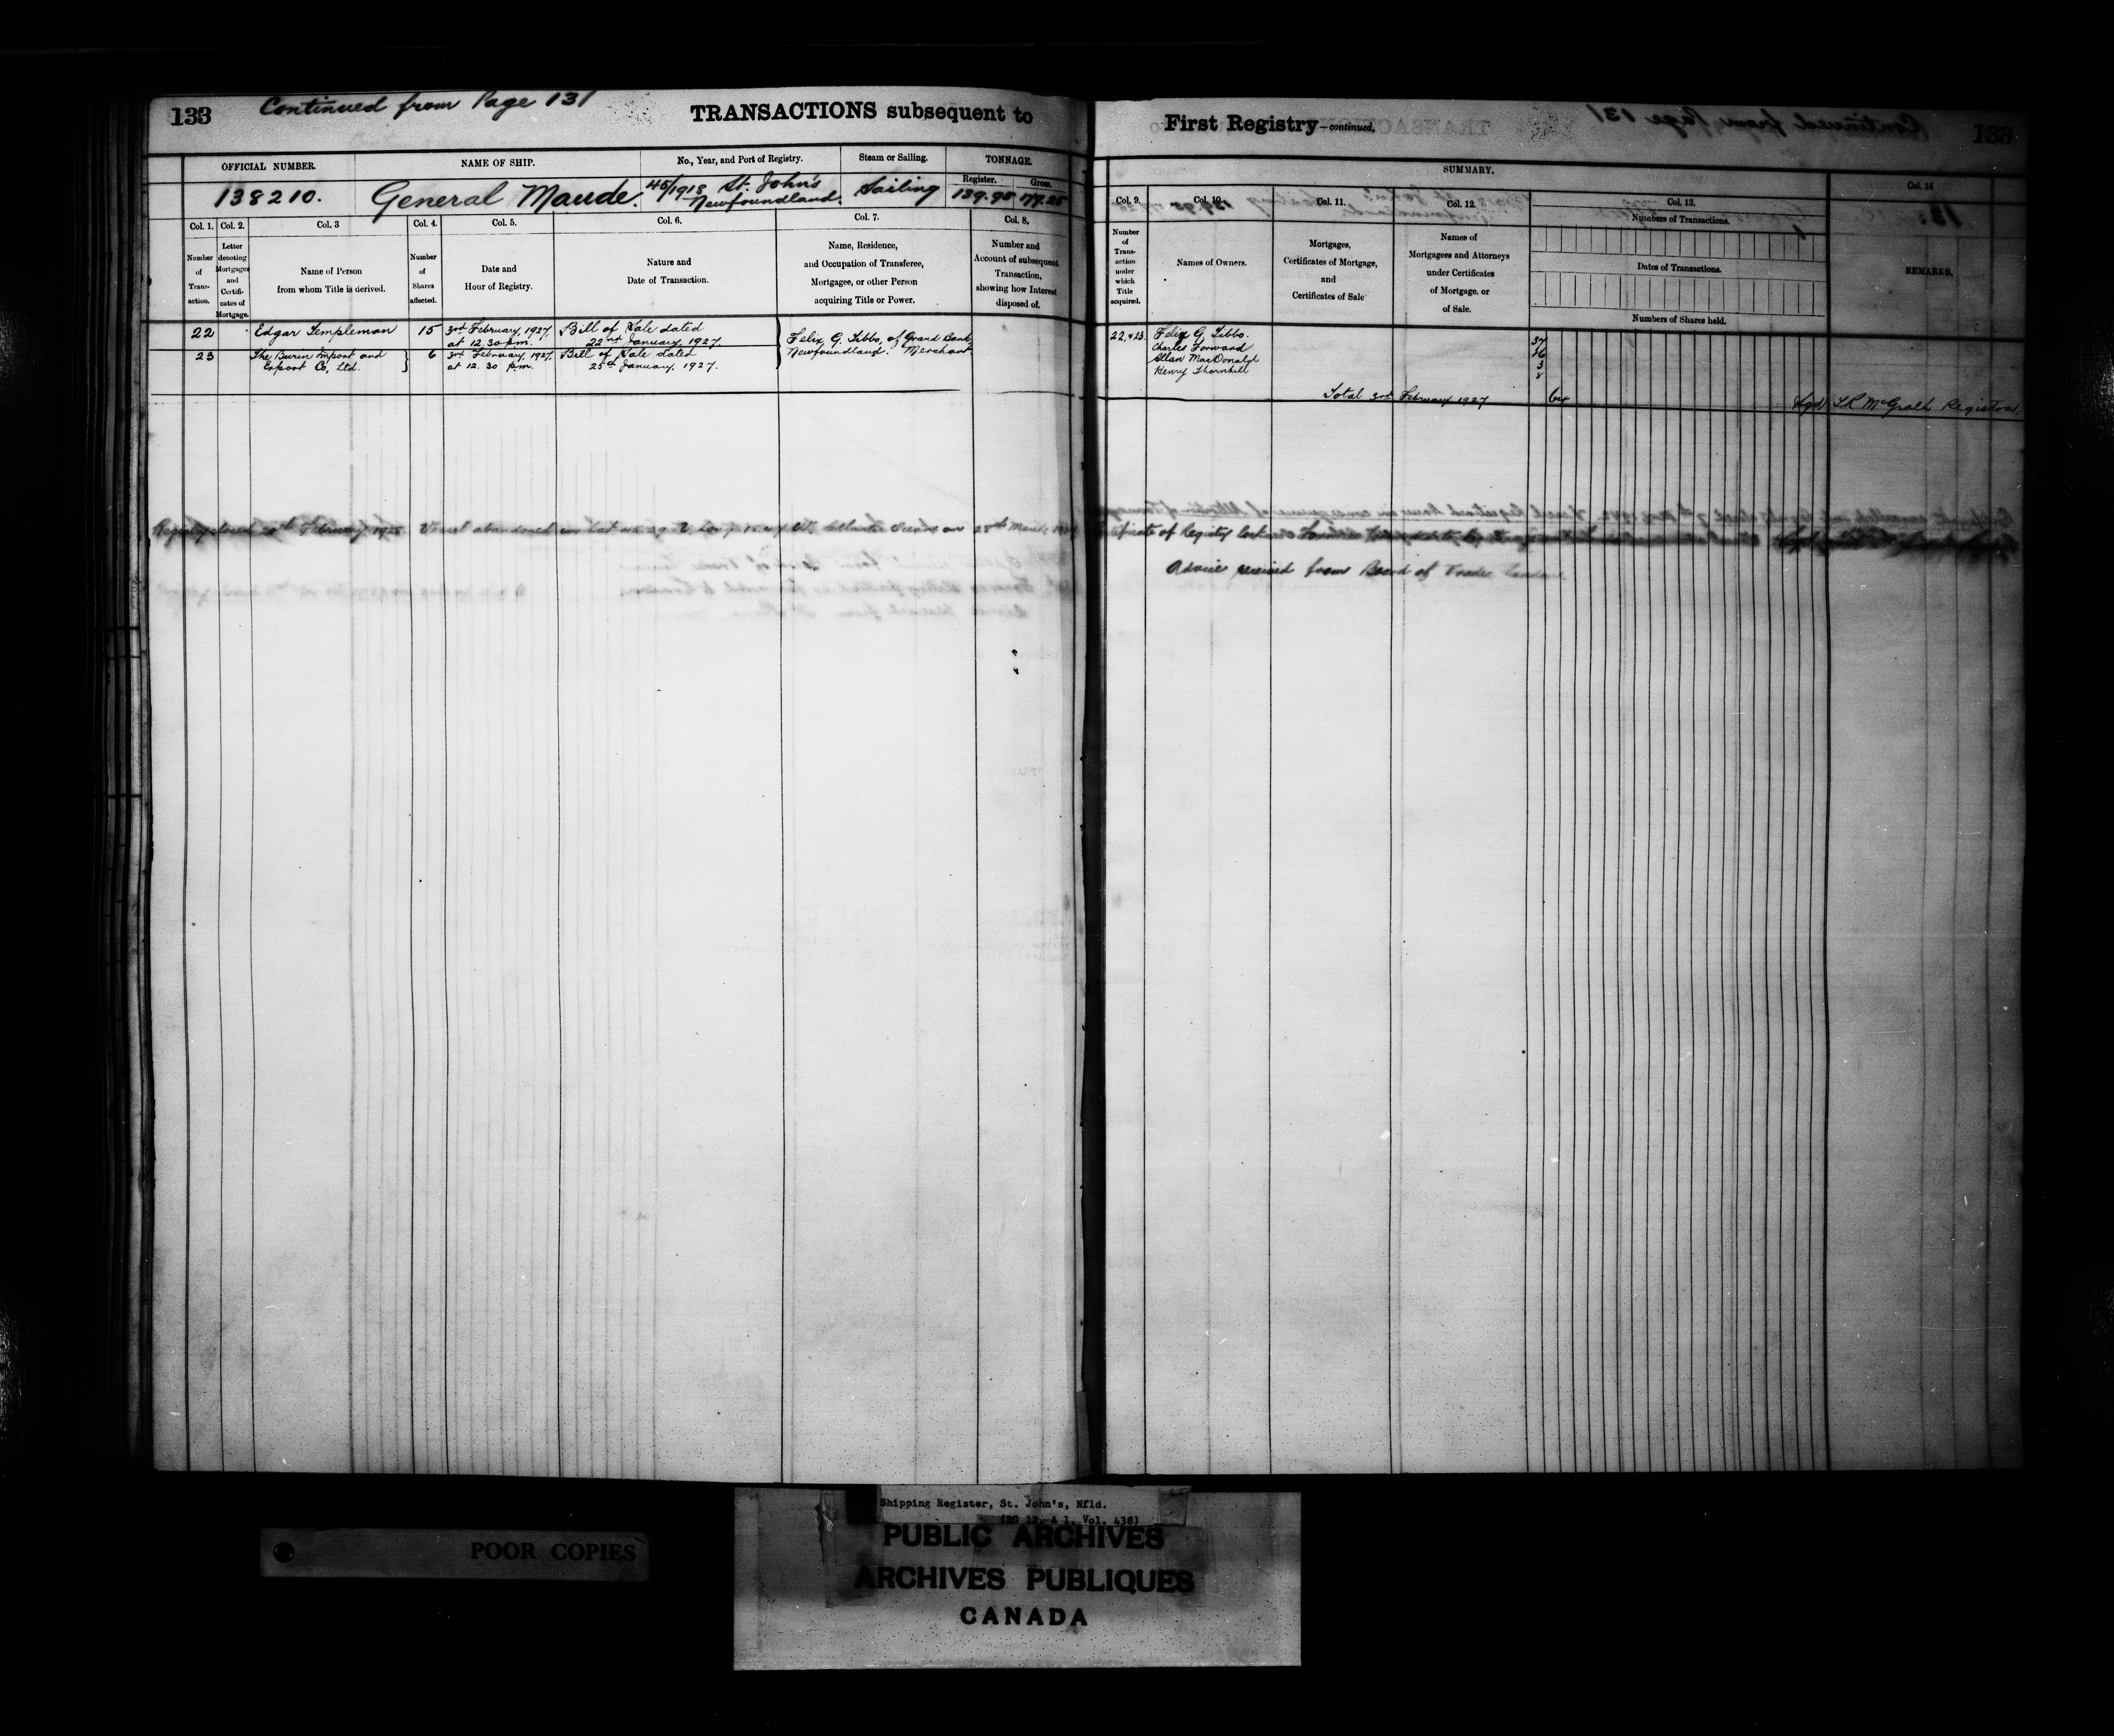 133 Continued from Page 131 TRANSACTIONS subsequent to
OFFICIAL NUMBER. NAME OF SHIP. No., Year, and Port of Registry. Steam or Sailing. TONNAGE.
Register. Gross.
138210. General Maude. 45/1918 St. John's Newfoundland. Sailing 139.98 179.25
Col. 1. Col. 2. Col. 3 Col. 4. Col. 5. Col. 6. Col. 7. Col. 8.
Number of Trans- action.
Letter denoting Mortgages and Certifi- cates of Mortgage.
Name of Person from whom Title is derived.
Number of Shares affected.
Date and Hour of Registry.
Nature and Date of Transaction.
Name, Residence, and Occupation of Transferee, Mortgagee, or other Person acquiring Title or Power.
Number and Account of subsequent Transaction, showing how Interest disposed of.
22 Edgar Templeman 15 3rd February, 1927, at 12.30 p.m. Bill of Sale dated 22nd January 1927
23 The Burin Import and Export Co, Ltd. 6 3rd February, 1927, at 12.30 p.m. Bill of Sale dated 25th January, 1927.
Felix G. Tibbo, of Grand Bank, Newfoundland. Merchant
Registry closed 20th February 1928. Vessel abandoned in Lat 29 Long Atlantic Ocean on 28th March
First Registry—continued.
133
SUMMARY.
Col. 9. Col. 10. Col. 11. Col. 12. Col. 13. Col. 14
Number of Trans- action under which Title acquired.
Names of Owners.
Mortgages, Certificates of Mortgage, and Certificates of Sale
Names of Mortgagees and Attorneys under Certificates of Mortgage. or of Sale.
Numbers of Transactions.
Dates of Transactions.
Numbers of Shares held.
REMARKS.
22, & 23. Felix G. Tibbo.
Charles Forward
Allan MacDonald
Henry Thornhill
Total 3rd February 1927 64 (sgd) L R McGrath Registrar.
Certificate of Registry lost
Advice received from Board of Trade London
Shipping Register, St. John's, Nfld.
(RG 12, A 1, Vol. 438)
POOR COPIES
PUBLIC ARCHIVES
ARCHIVES PUBLIQUES
CANADA